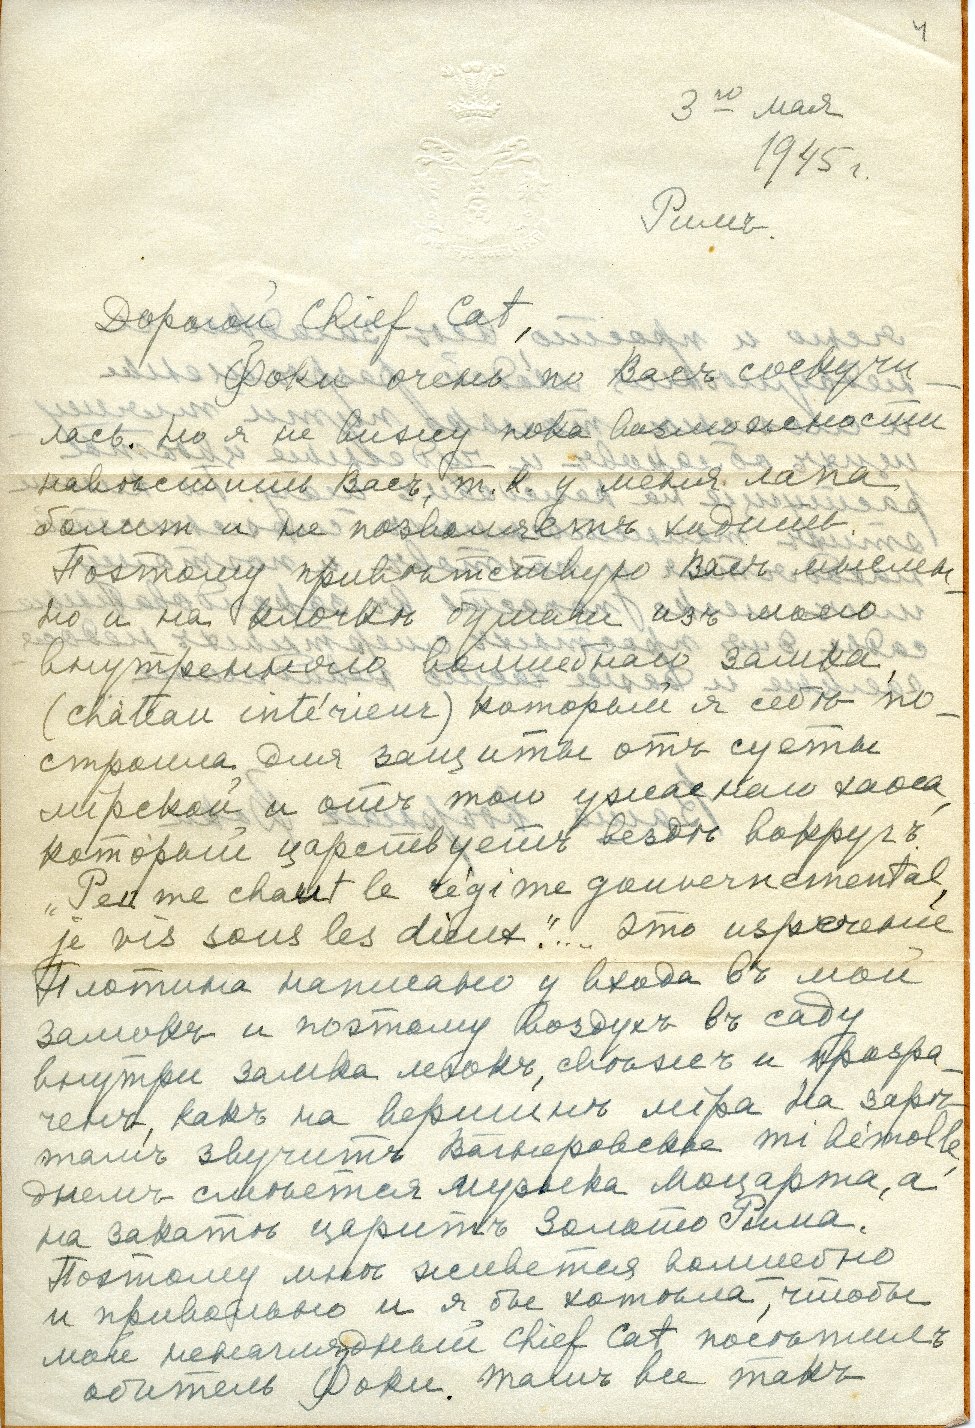 4
3го мая
1945 г.
Римъ.
Дорогой Chief Cat,
Фоки очень по Васъ соскучи-
лась. Но я не вижу пока возможности
навѣстить Васъ, т.к. у меня лапа
болит и не позволяетъ ходить.
Поэтому привѣтствую Васъ мыслен-
но и на клочкѣ бумаги изъ моего
внутренняго волшебнаго замка,
(château intérieur) который я себѣ по-
строила для защиты отъ суеты
мірской и отъ того ужаснаго хаоса,
который царствуетъ вездѣ вокругъ.
„Peu me chaut le régime gouvernemental,
je vis sous les dieux!".... Это изрѣченіе
Плотина написано у входа въ мой
замокъ и поэтому воздухъ въ саду
внутри замка легокъ, свѣжъ и прозра-
ченъ, какъ на вершинѣ міра На зарѣ
тамъ звучитъ Вагнеровское mi bémolle,
днемъ смѣется музыка Моцарта, а
на закатѣ царитъ Золото Рима.
Поэтому мнѣ живется волшебно
и привольно и я бы хотѣла, чтобы
мой ненаглядный Chief Cat посѣтилъ
обитель Фоки. Тамъ все такъ